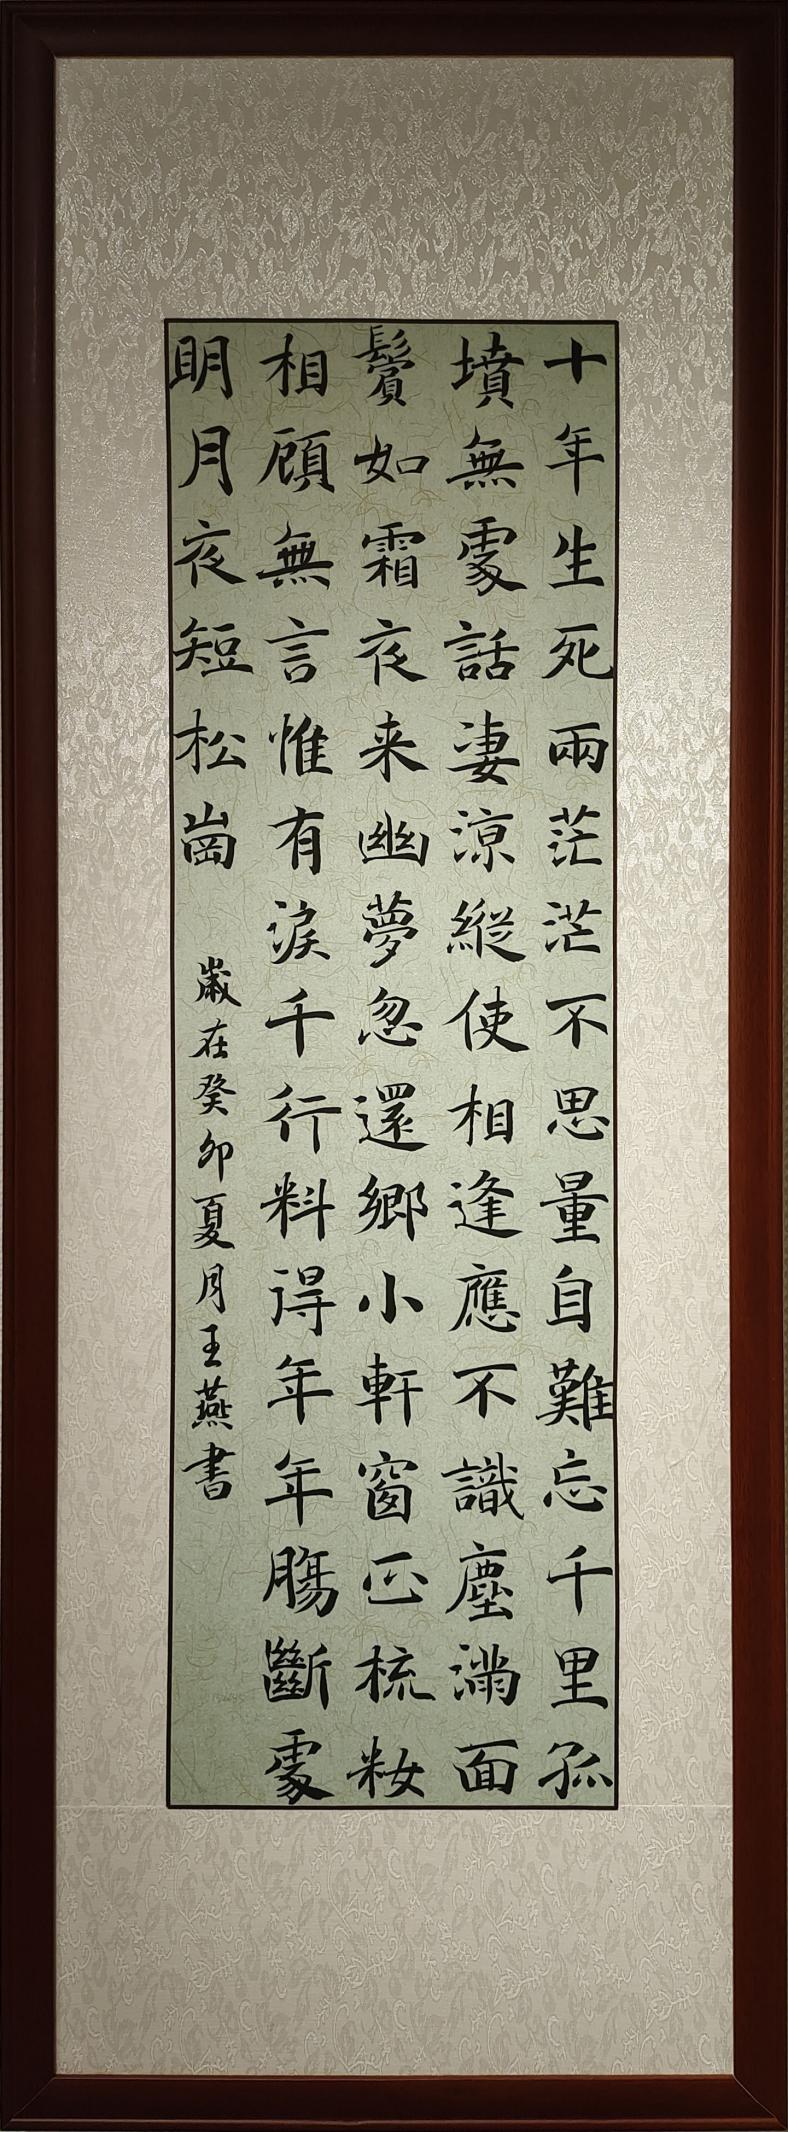 十年生死兩茫茫不思量自難忘千里孤
墳無處話淒涼縱使相逢應不識塵滿面
鬢如霜夜来幽夢忽還鄉小軒窗正梳妝
相顧無言惟有淚千行料得年年腸斷處
明月夜短松崗
歲在癸卯夏月王燕書